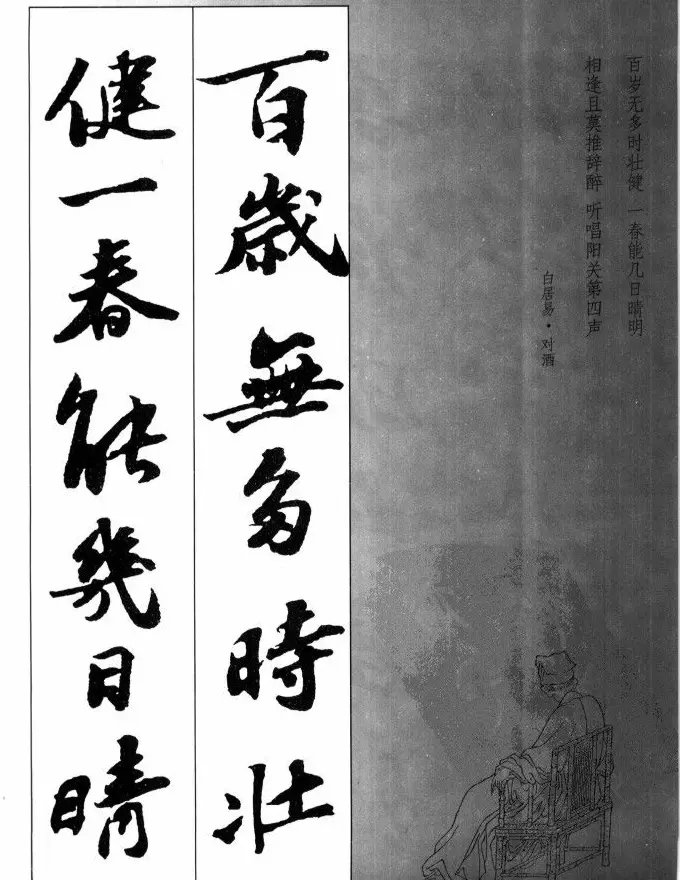 百岁无多时壮健 一春能几日晴明
相逢且莫推辞醉 听唱阳关第四声
白居易·对酒
百歳無多時壮
健一春能幾日晴